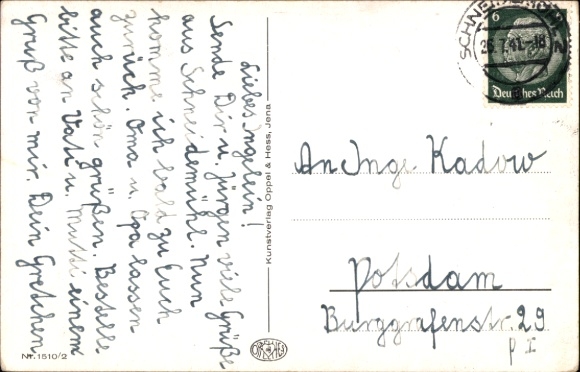 Liebes Ingelein!
Sende Dir u. Jürgen viele Grüße
aus Schneidemühl. Nun
komme ich bald zu Euch
zurück. Oma u. Opa lassen
auch schön grüßen. Bestelle
bitte an Vati u. Mutti einen
Gruß von mir. Dein Gretchen
Nr. 1510/2
Kunstverlag Oppel & Hess, Jena
SCHNEIDEMÜHL
25.7.41.-18
6
Deutsches Reich
An Inge Kadow
Potsdam
Burggrafenstr. 29
p I